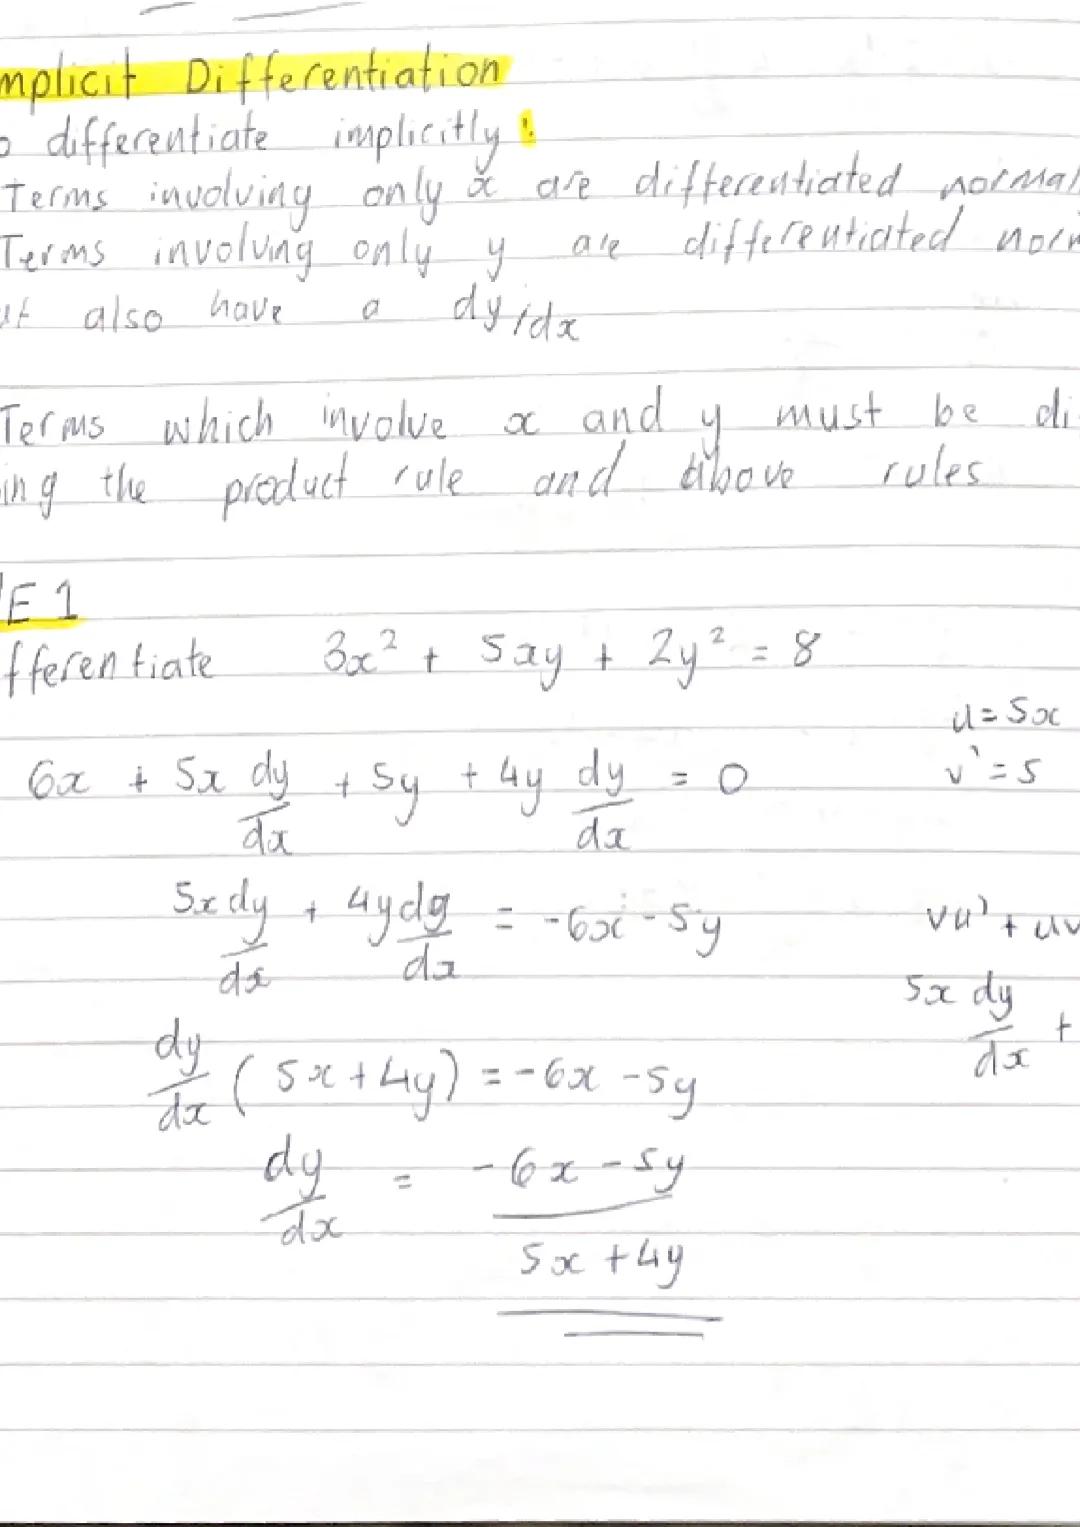 mplicit Differentiation
o differentiate implicitly:
Terms involving only x are differentiated normal
Terms involving only y are differentiated norm
ut also have a dy/dx
Terms which involve x and y must be di
ing the product rule and above rules
E 1
fferentiate 3x² + 5xy + 2y² = 8
u = 5x
6x + 5x dy/dx + 5y + 4y dy/dx = 0
v' = 5
5x dy/dx + 4y dy/dx = -6x - 5y
vu' + uv
5x dy/dx +
dy/dx (5x + 4y) = -6x - 5y
dy/dx = -6x - 5y
5x + 4y